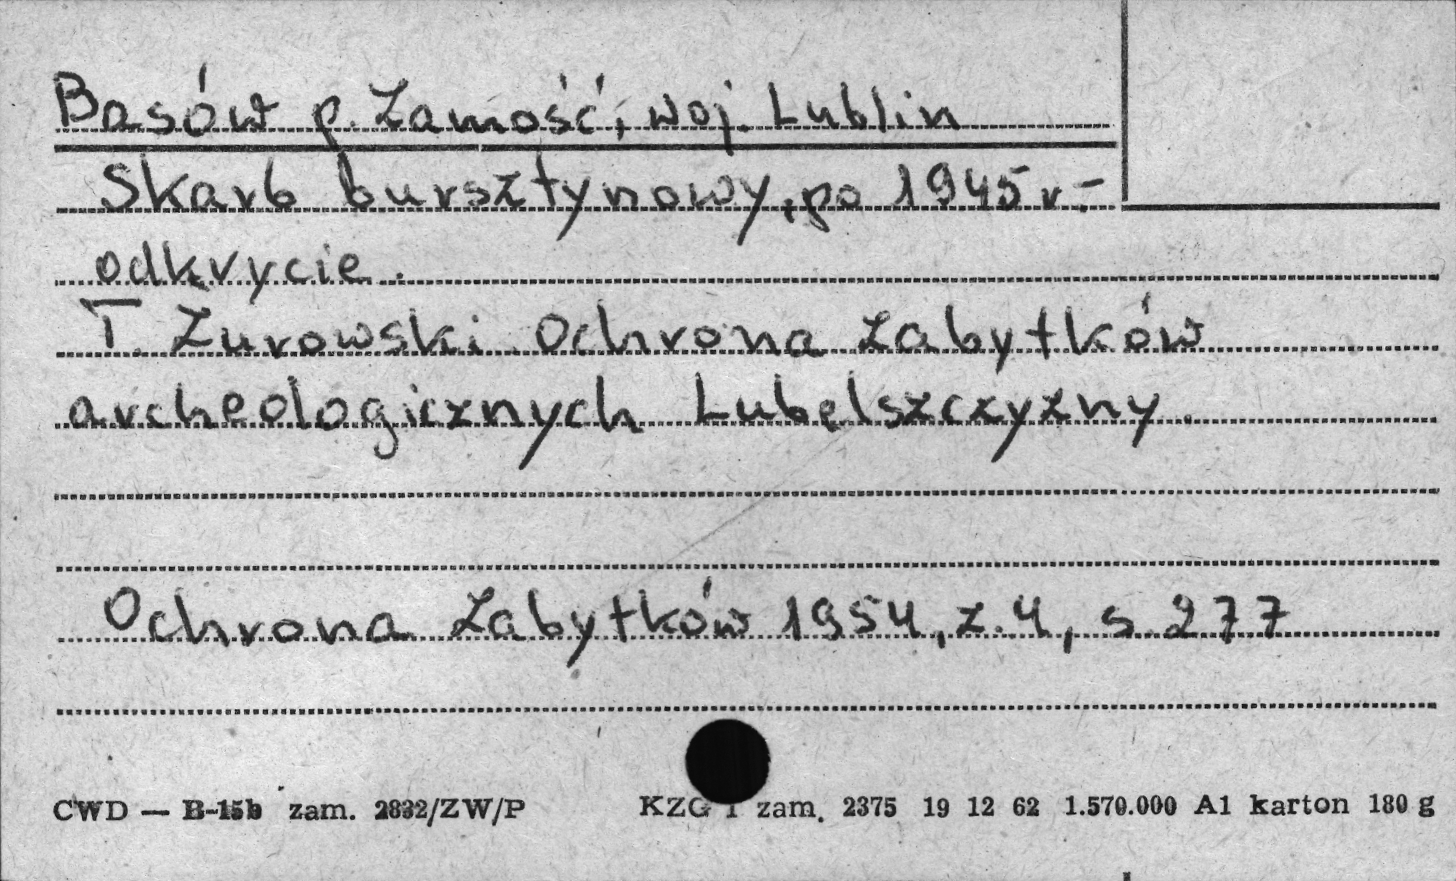 Basów p. Zamość, woj. Lublin
Skarb bursztynowy, po 1945 r.-
odkrycie.
T. Żurowski Ochrona Zabytków
archeologicznych Lubelszczyzny.
Ochrona Zabytków 1954, z. 4, s. 277
CWD — B-15b zam. 2832/ZW/P KZG 1 zam. 2375 19 12 62 1.570.000 A1 karton 180 g